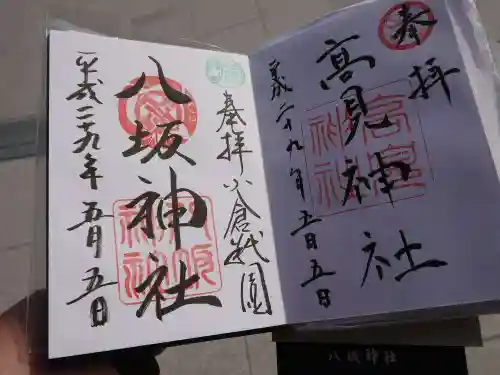 奉拝
高見神社
平成二十九年五月五日
奉拝 小倉祇園
八坂神社
平成二十九年五月五日
八坂神社